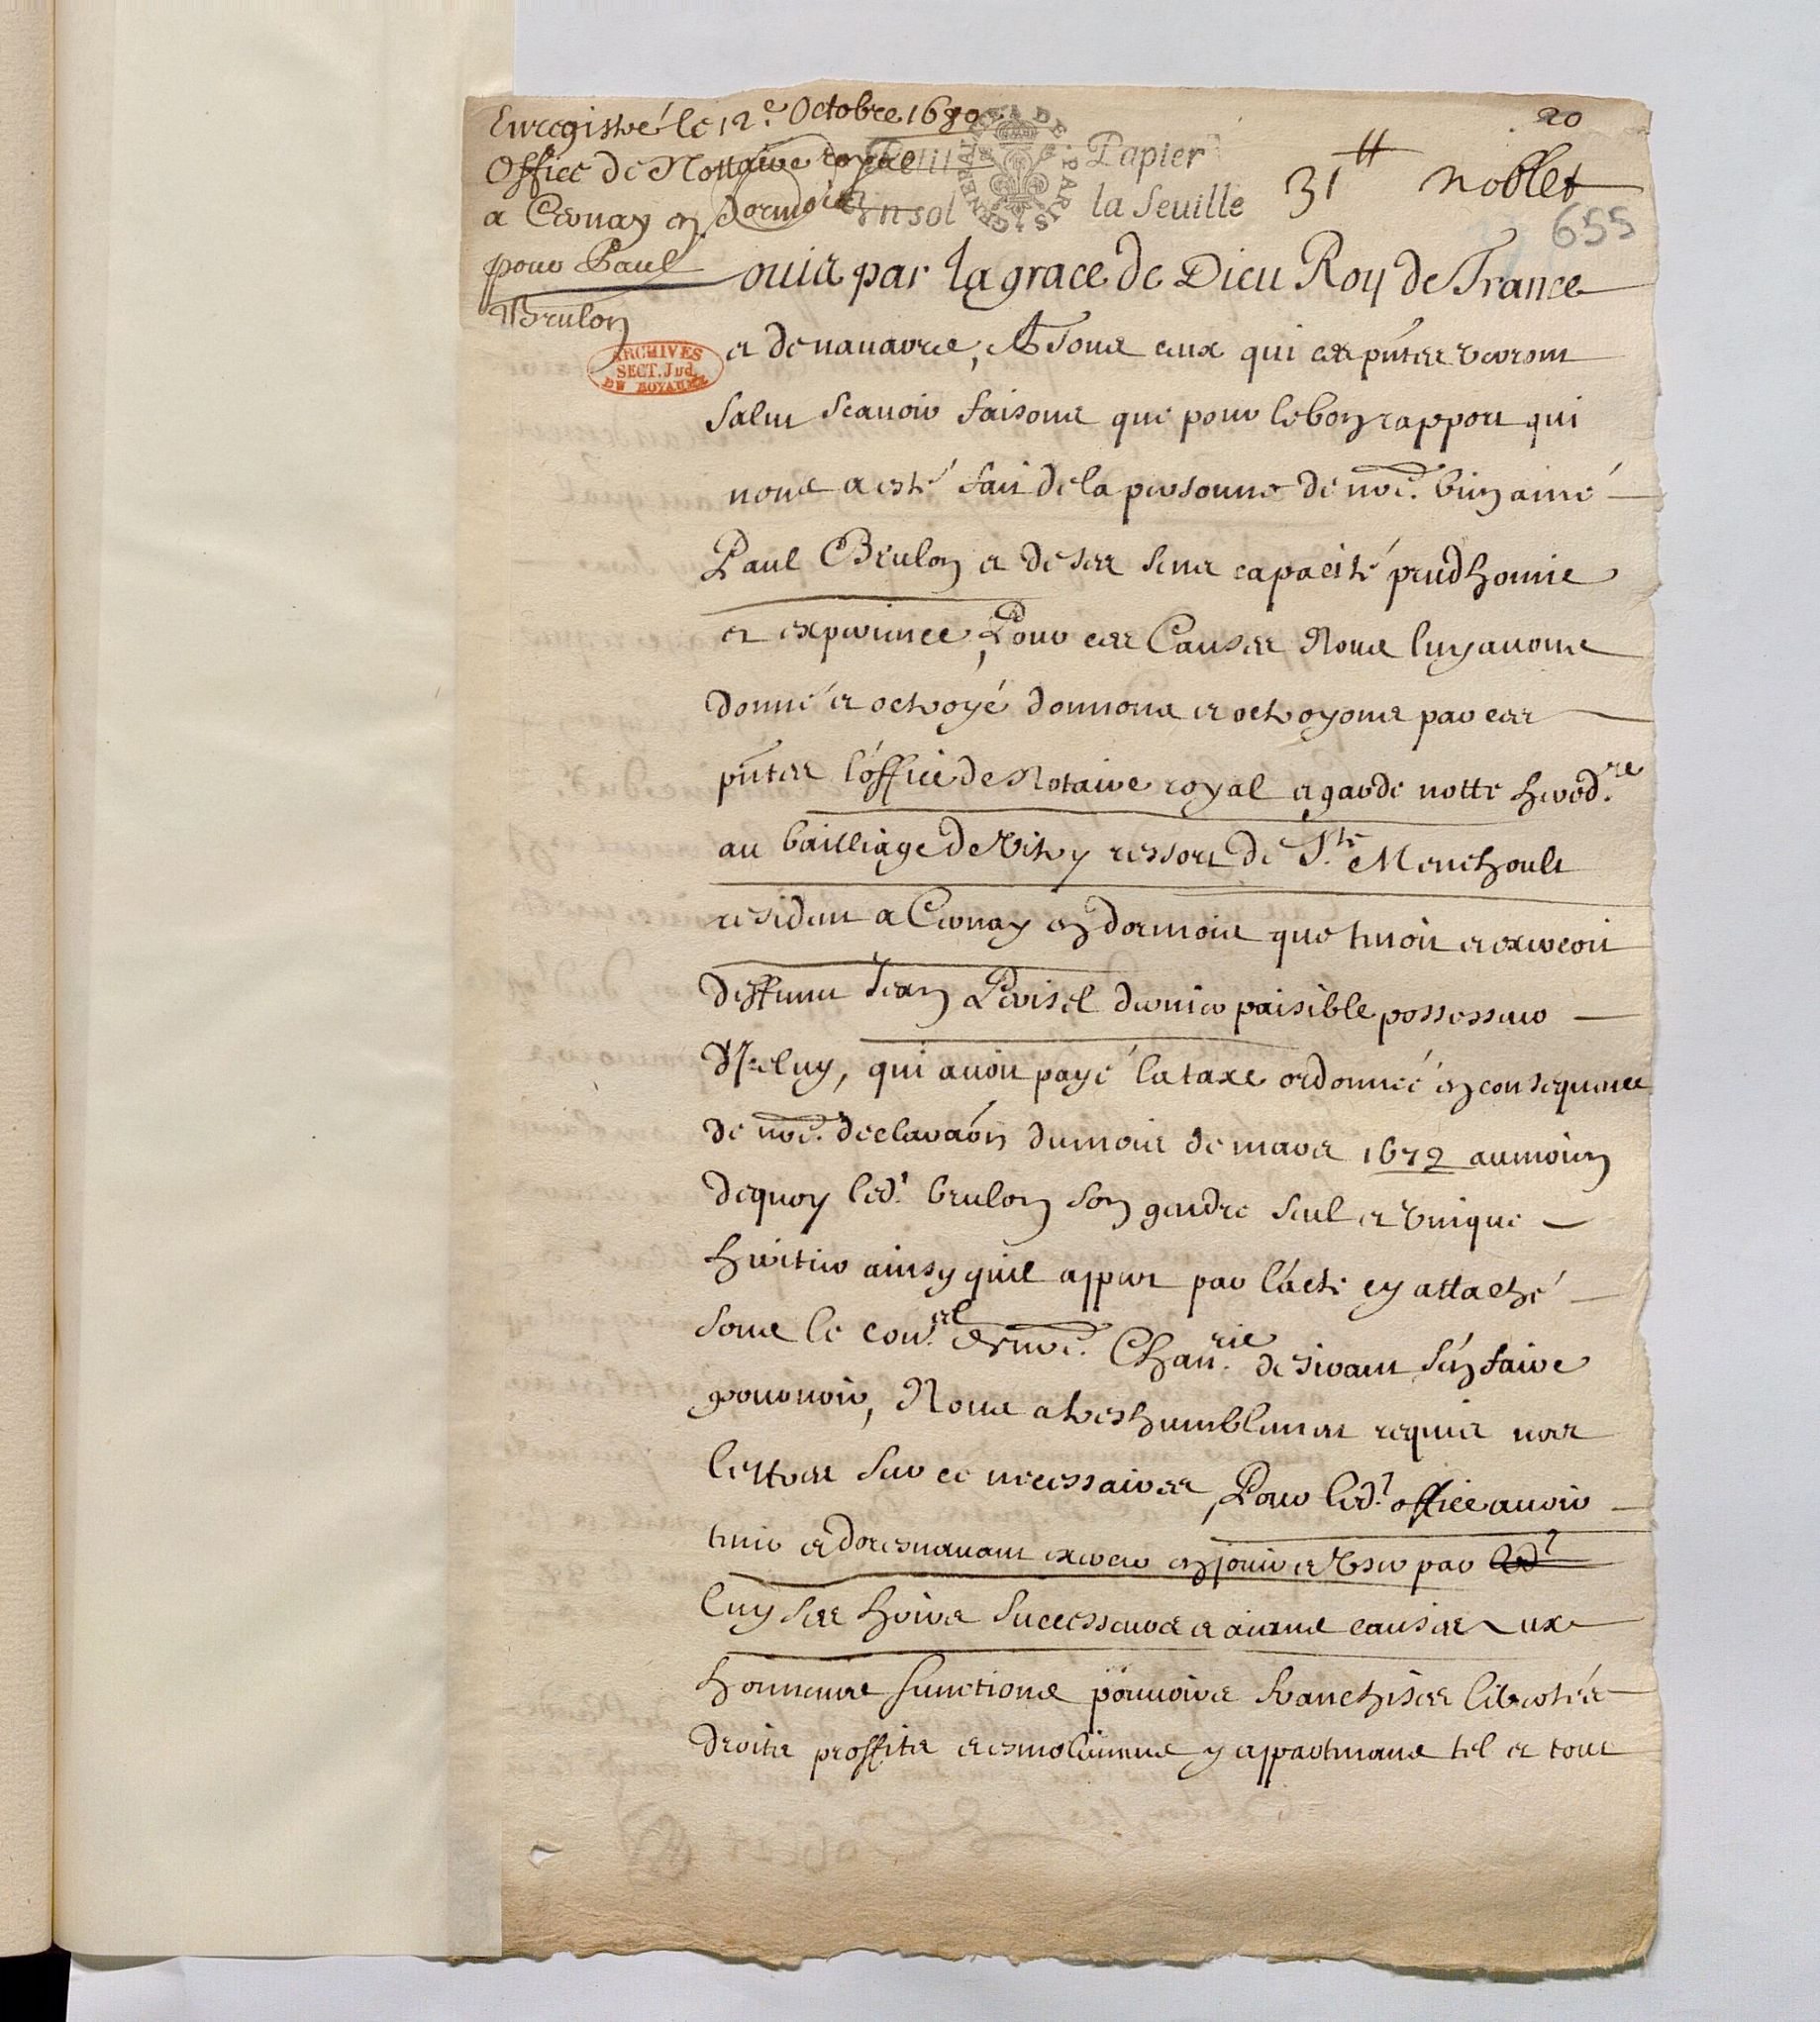 Enregistré le 12e. Octobre 1680
20
Office de Nottaire royal
a Cernay en dormois
pour Paul
Brulon
Petit Papier
Un sol la feuille
GENERALITE DE PARIS
31tt noblet
655
ARCHIVES
SECT. Jud.
DU ROYAUME
ouis par la grace de Dieu Roy de France
et de navarre, A Tous ceux qui ces pntes verront
Salut Scauoir faisons que pour le bon rapport qui
nous a esté fait de la personne de nre. bien amé
Paul Brulon et de ses sens capacité prudhomie
et experience, Pour ces Causes Nous luy auons
donné et octroyé donnons et octroyons par ces
pntes l'office de Notaire royal et garde notte heredre.
au bailliage de Vitry ressort de Ste. Menehoult
resident a Cernay en dormois que tenoit et exercoit
deffunt Jean Perisel dernier paisible possesseur
d'Iceluy, qui auoit payé la taxe ordonneé en consequence
de nre. declaraõn du mois de mars 1672 au moien
dequoy led.t brulon son gendre seul et vnique
heritier ainsy quil appert par l'acte cy attaché
sous le con.el de nre. Chan.rie desirant s'en faire
pouruoir, Nous a tres humblement requis nos
lettres sur ce necessaires, Pour led.t office auoir
tenir et doresnauant exercer en jouir et vser par led.t
luy ses hoirs successeurs et aians causes aux
honneurs functions pouuoirs franchises libertés
droits proffits et esmolumens y appartenans tel et tout